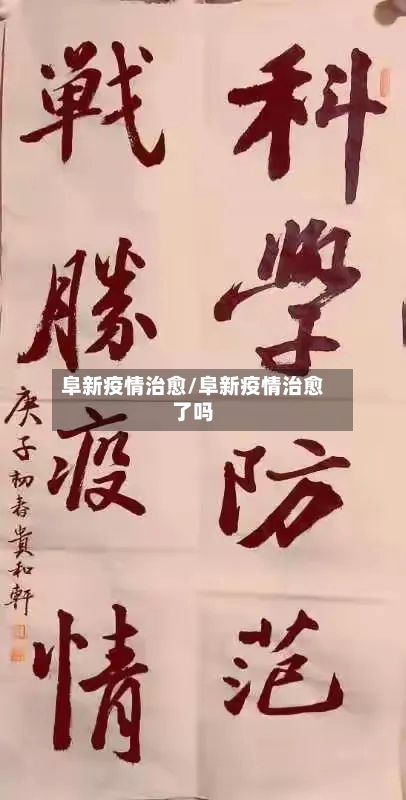 科學防范
戰勝疫情
庚子初春貴和軒
阜新疫情治愈/阜新疫情治愈
了吗